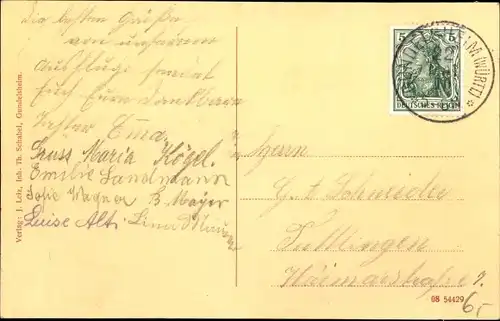 Die besten Grüße
von unserem
Ausfluge sendet
Euch Eure dankbare
Tochter Ema.
Gruss Maria Kögel.
Emilie Landmann
Sofie Wagner B. Mayer
Luise Alt. Lina
Verlag: J. Leiz, Inh. Th. Schabel, Gundelsheim.
5 5
DEUTSCHES REICH
(WÜRTT.)
Herrn
G. A. Schneider
Tuttlingen
Weimarstraße 9.
08 54429
6,-